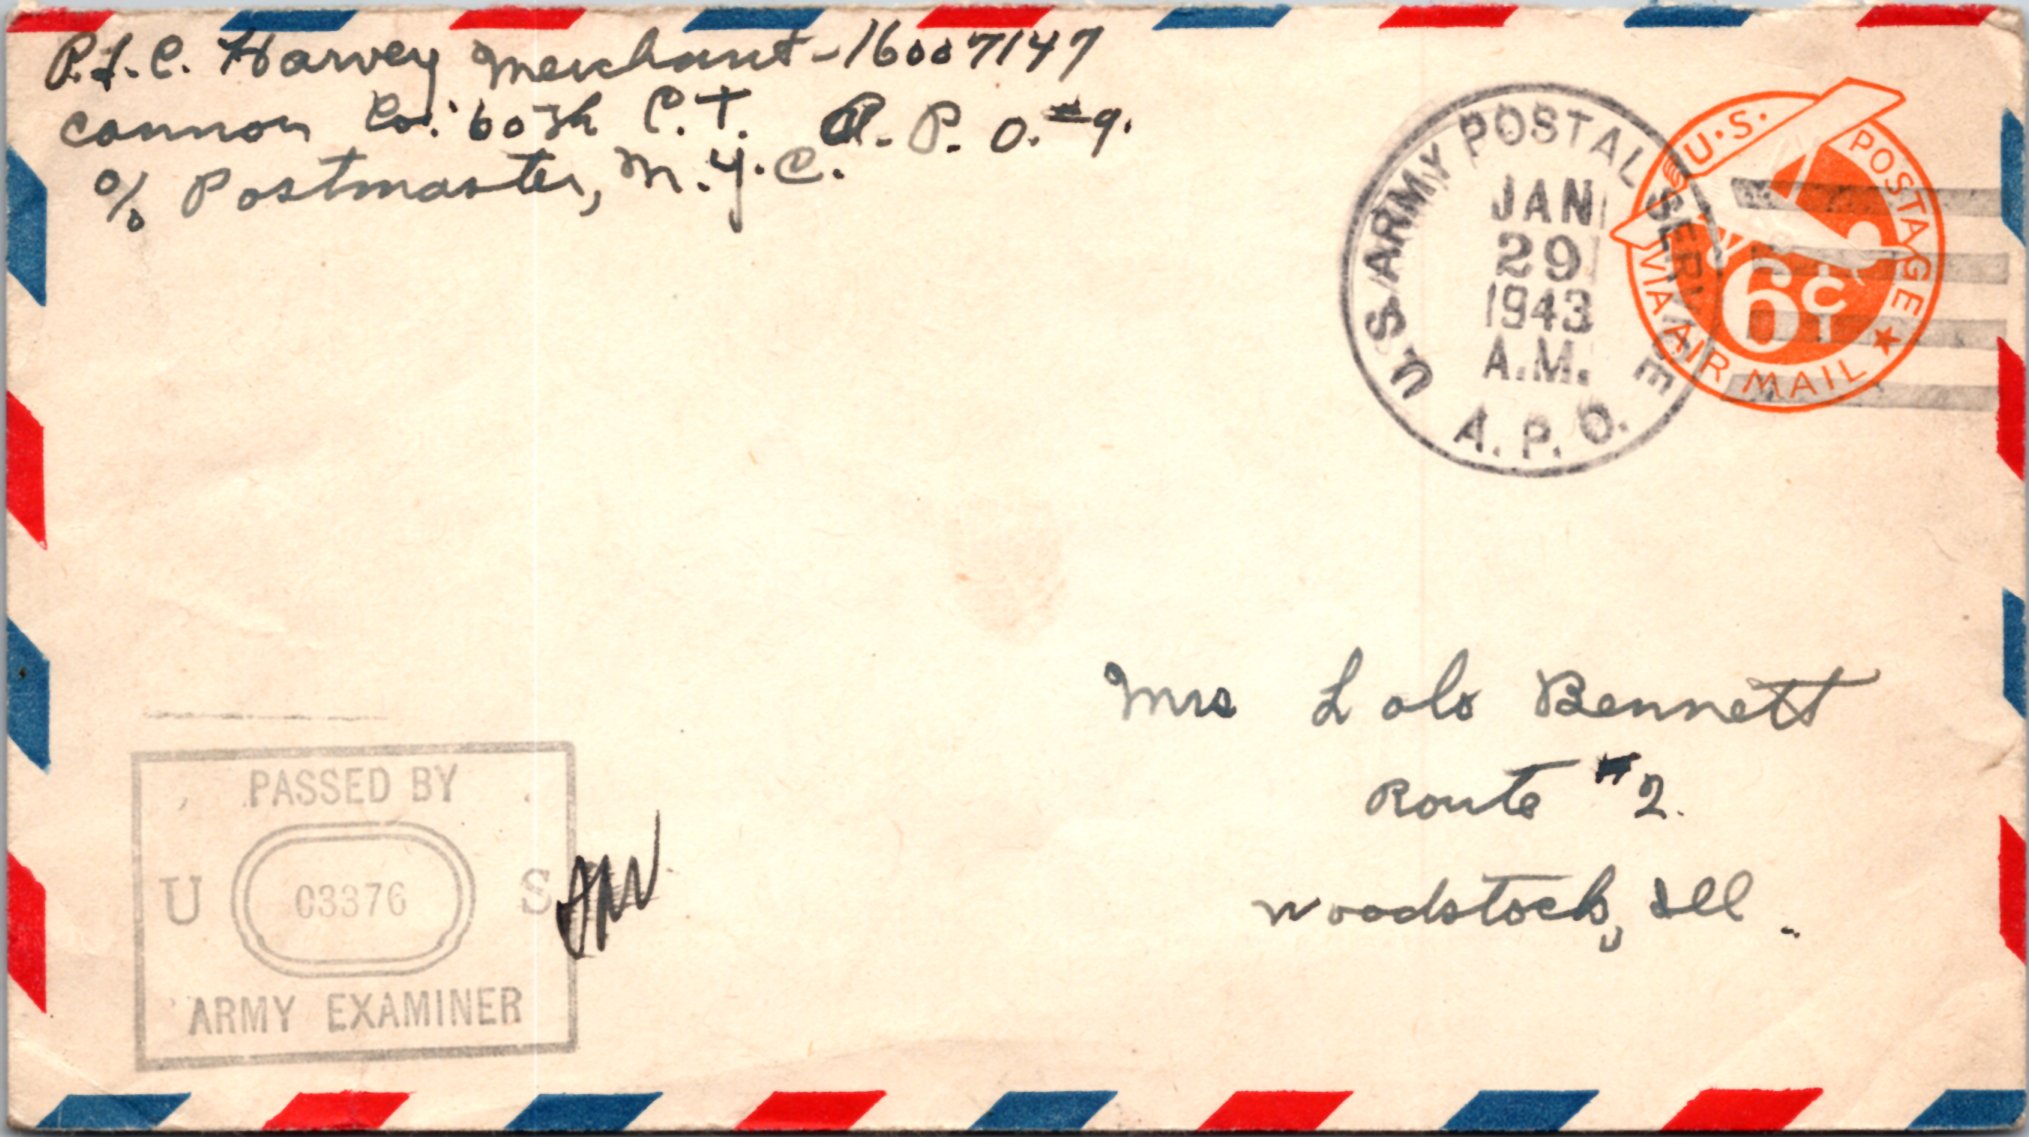 P.F.C. Harvey Merchant - 16007147
Cannon Co. 60th C.T. A.P.O. #9.
c/o Postmaster, N.Y.C.
U.S. ARMY POSTAL SERVICE
JAN
29
1943
A.M.
A.P.O.
U.S. POSTAGE
6¢
VIA AIR MAIL
Mrs Lola Bennett
Route #2.
Woodstock, Ill.
PASSED BY
U 03376 S
ARMY EXAMINER